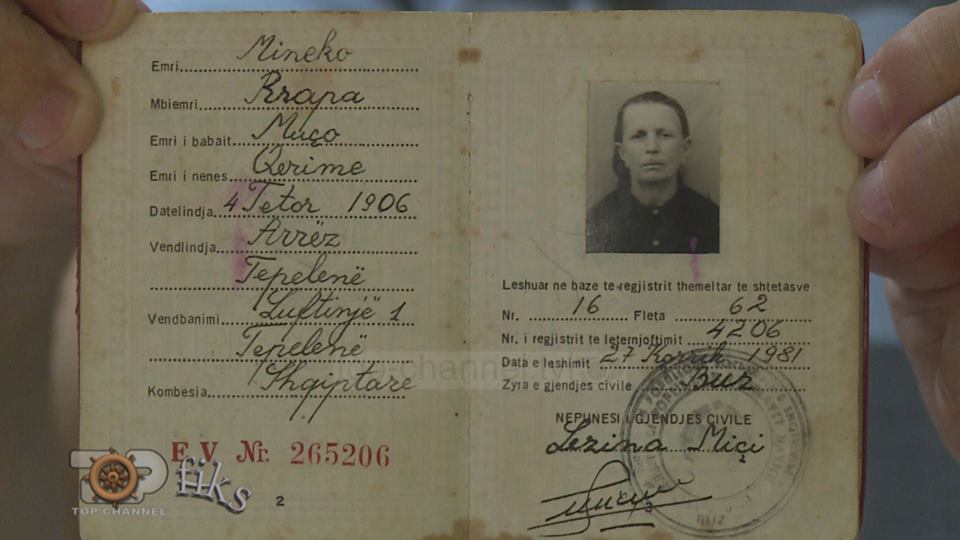 Emri Mineko
Mbiemri Rrapa
Emri i babait Muço
Emri i nenes Qerime
Datelindja 4 Tetor 1906
Vendlindja Arrëz
Tepelenë
Vendbanimi Luftinjë 1
Tepelenë
Kombesia Shqiptare
E.V Nr. 265206
2
Leshuar ne baze te regjistrit themeltar te shtetasve
Nr. 16 Fleta 62
Nr. i regjistrit te leternjoftimit 4206
Data e leshimit 27 Korrik 1981
Zyra e gjendjes civile Buz
NEPUNESI I GJENDJES CIVILE
Lezina Miçi
BUZ
top-channel.tv
TOP
fiks
TOP CHANNEL